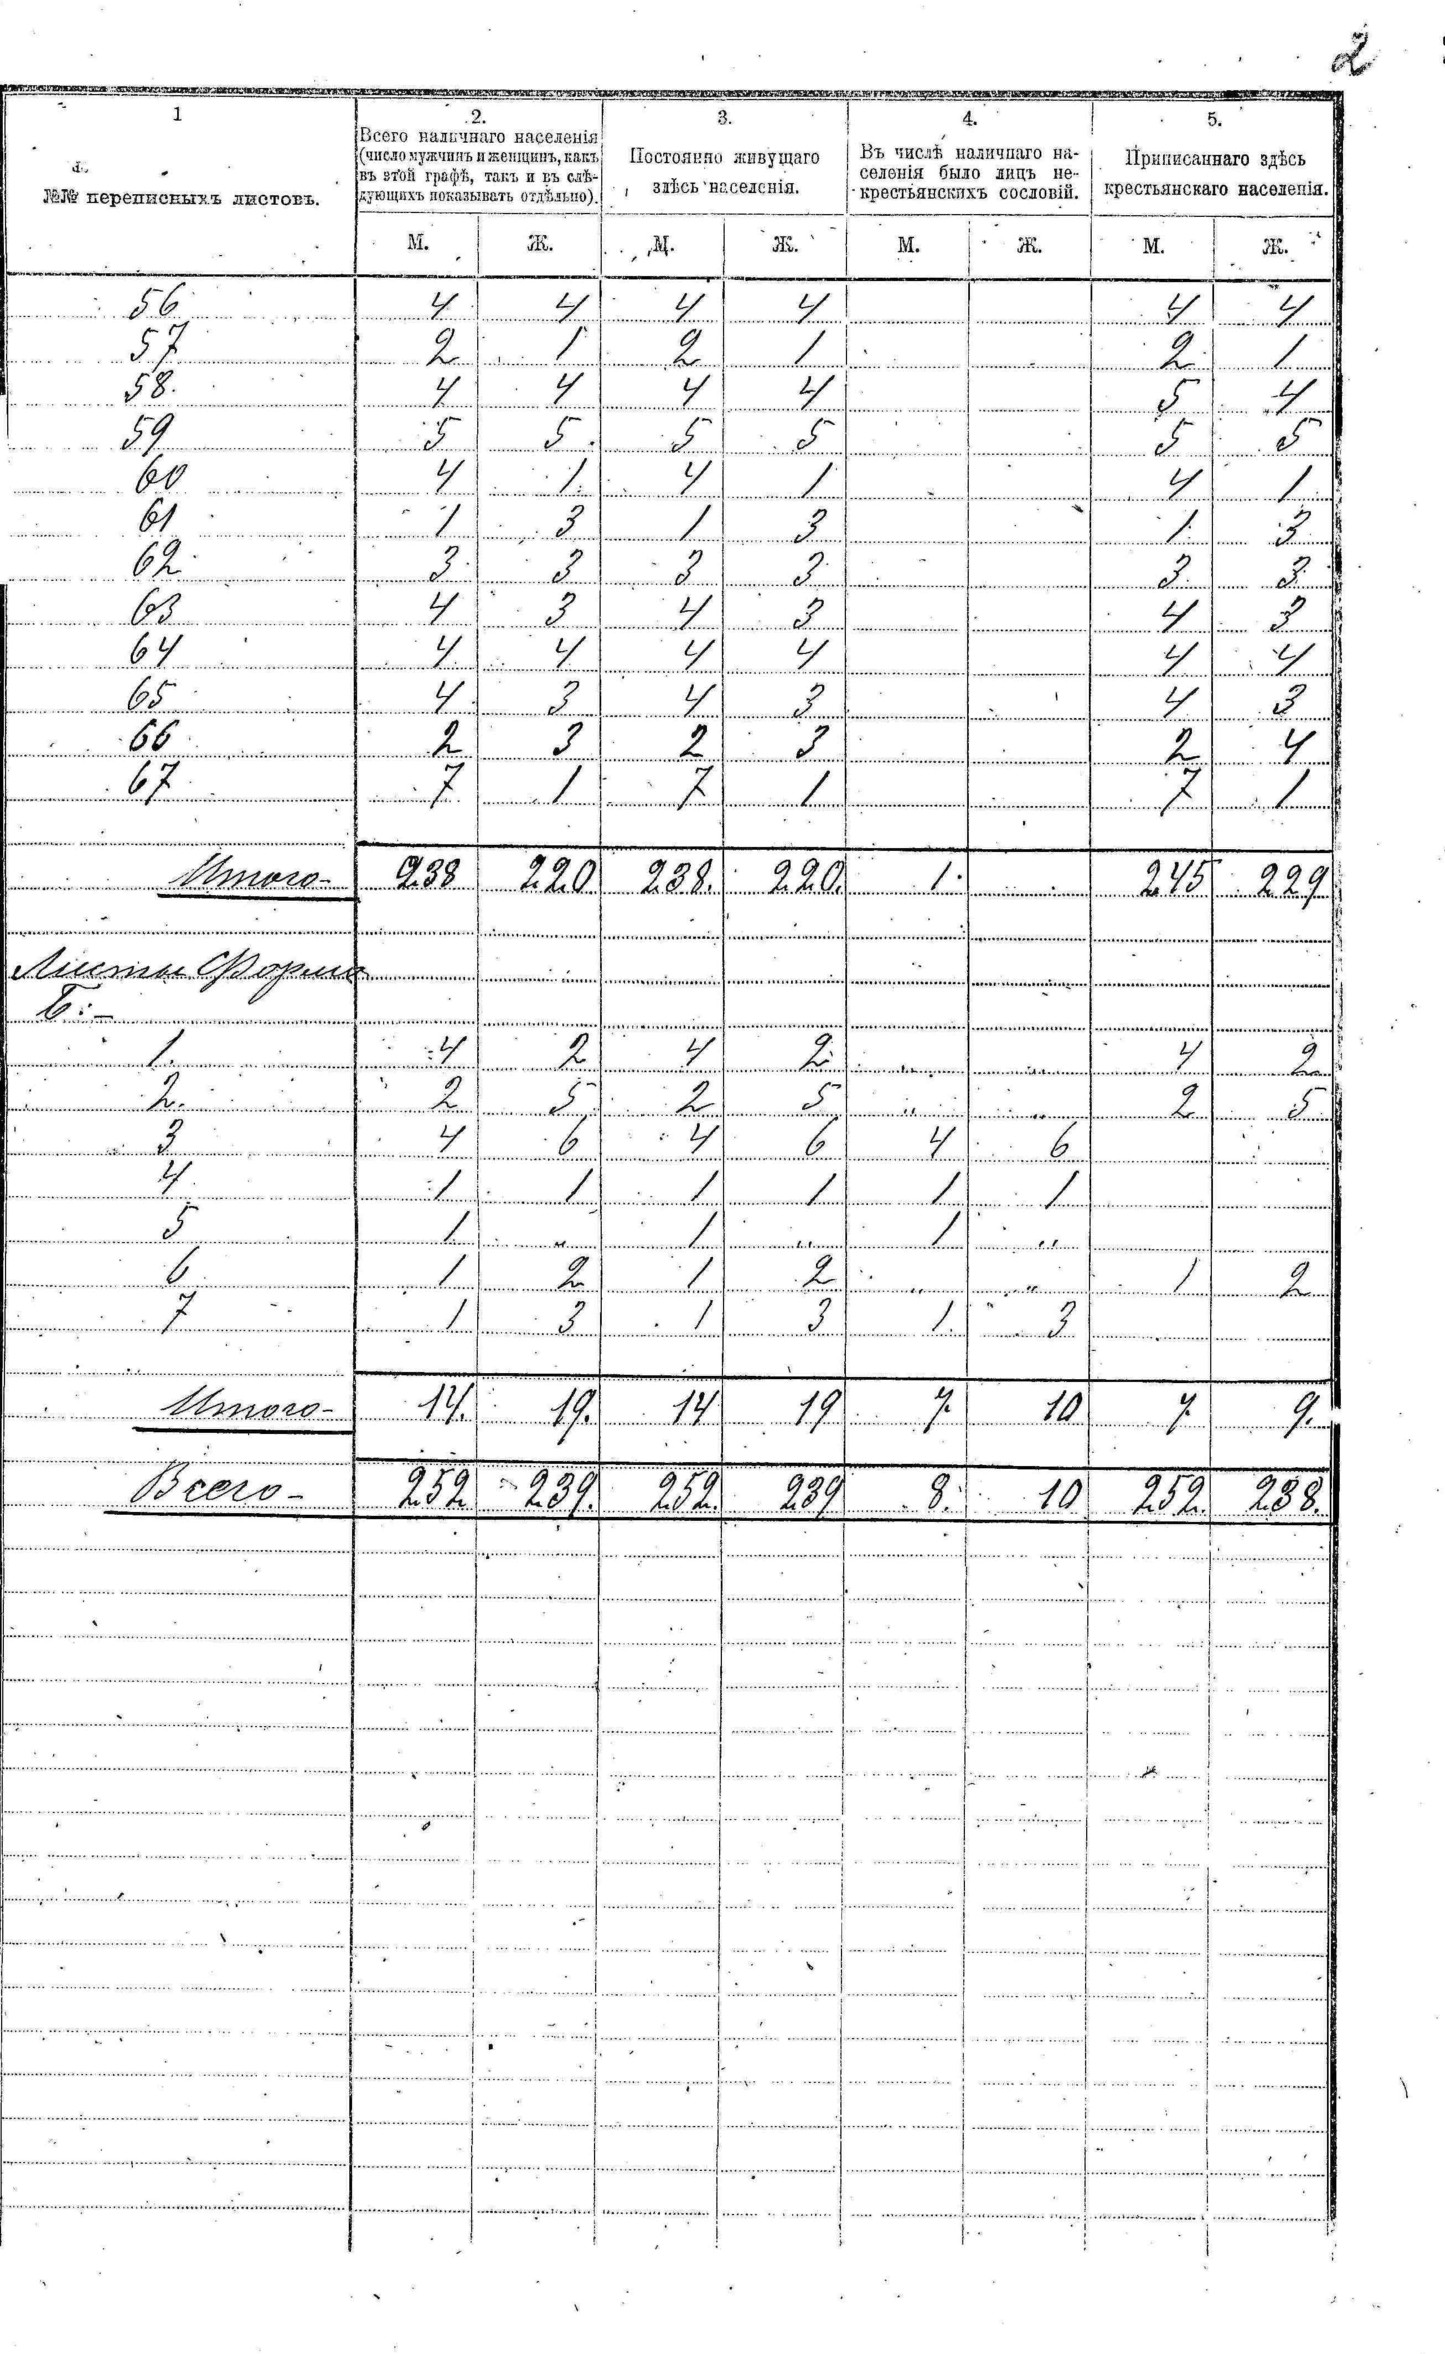 2
1 2. 3. 4. 5.
№№ переписныхъ листовъ.
Всего наличнаго населенія
(число мужчинъ и женщинъ, какъ
въ этой графѣ, такъ и въ слѣ-
дующихъ показывать отдѣльно).
Постоянно живущаго
здѣсь населенія.
Въ числѣ наличнаго на-
селенія было лицъ не-
крестьянскихъ сословій.
Приписаннаго здѣсь
крестьянскаго населенія.
М. Ж. М. Ж. М. Ж. М. Ж.
56 4 4 4 4 4 4
57 2 1 2 1 2 1
58. 4 4 4 4 5 4
59 5 5 5 5 5 5
60 4 1 4 1 4 1
61 1 3 1 3 1 3
62 3 3 3 3 3 3
63 4 3 4 3 4 3
64 4 4 4 4 4 4
65 4 3 4 3 4 3
66 2 3 2 3 2 4
67 7 1 7 1 7 1
Итого- 238 220 238. 220. 1. 245 229
Листы Форма
Б:-
1. 4 2 4 2 „ „ 4 2
2. 2 5 2 5 „ „ 2 5
3 4 6 4 6 4 6
4 1 1 1 1 1 1
5 1 „ 1 „ 1 „
6 1 2 1 2 „ „ 1 2
7 1 3 1 3 1. 3
Итого- 14. 19. 14 19 7. 10 7. 9.
Всего- 252 239. 252. 239 8. 10 252. 238.